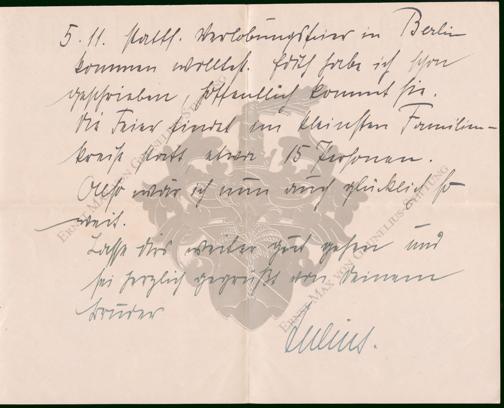 5.11. stattf. Verlobungsfeier in Berlin
kommen wolltet. Edith habe ich schon
geschrieben, hoffentlich kommt sie.
Die Feier findet im kleinsten Familien-
kreise statt etwa 15 Personen.
Also wär ich nun auch glücklich so
weit.
Lasse Dirs weiter gut gehen und
sei herzlich gegrüßt von Deinem
Bruder
Julius.
Ernst-Max von Grunelius-Stiftung
Ernst-Max von Grunelius-Stiftung